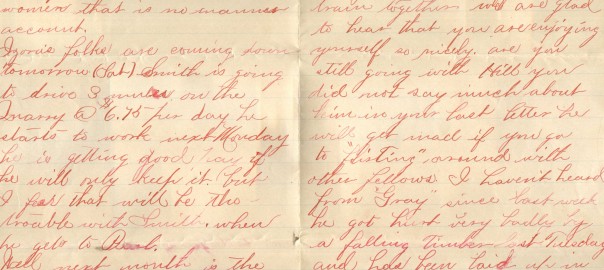 women that is no manner
account.
folks are coming down
tomorrow (Sat) Smith is going
to drive 3 mules on the
Quarry @ $6.75 per day he
starts to work next Monday
he is getting good pay if
he will only keep it. but
I fear that will be the
trouble with Smith. when
he gets to
Well next month is the
train together. we are glad
to hear that you are enjoying
yourself so nicely. are you
still going with Hill you
did not say much about
him in your last letter he
will get mad if you go
to "fisting" around with
other fellows. I haven't heard
from "Gray" since last week
he got hurt very badly by
a falling timber last Tuesday
and has been laid up in